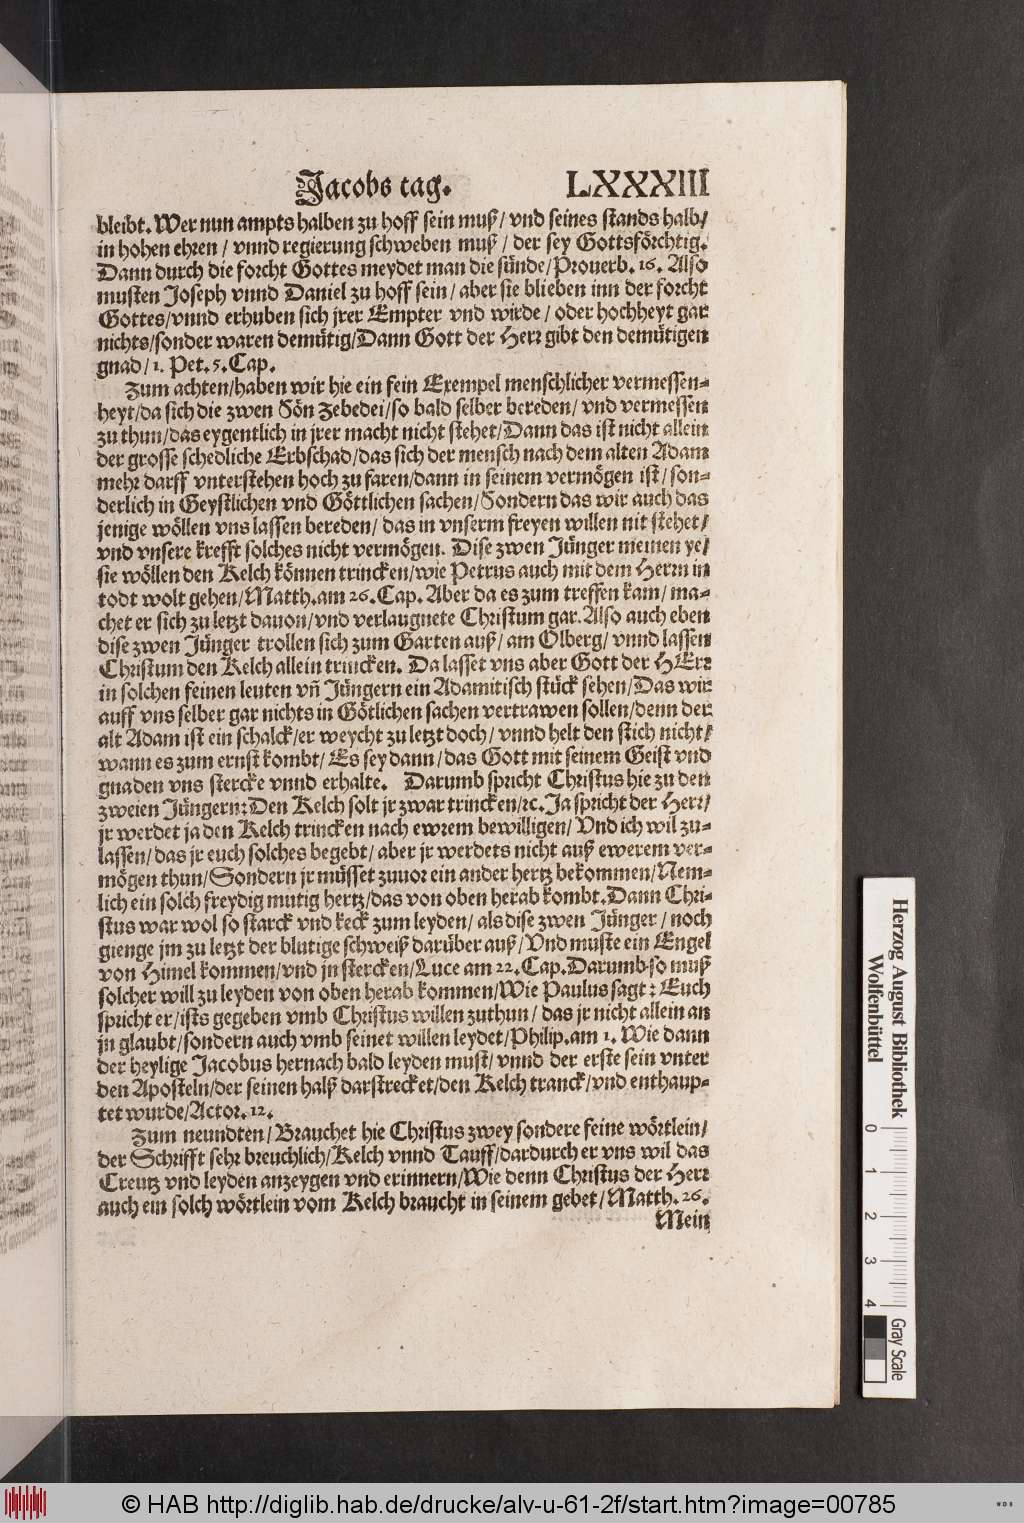 Jacobs tag. LXXXIII
bleibt. Wer nun ampts halben zu hoff sein muß / vnd seines stands halb /
in hohen ehren / vnnd regierung schweben muß / der sey Gottsförchtig.
Dann durch die forcht Gottes meydet man die sünde / Prouerb. 16. Also
musten Joseph vnnd Daniel zu hoff sein / aber sie blieben inn der forcht
Gottes / vnnd erhuben sich jrer Empter vnd wirde / oder hochheyt gar
nichts / sonder waren demütig / Dann Gott der Herr gibt den demütigen
gnad / 1. Pet. 5. Cap.
Zum achten / haben wir hie ein fein Exempel menschlicher vermessen-
heyt / da sich die zwen Sön Zebedei / so bald selber bereden / vnd vermessen
zu thun / das eygentlich in jrer macht nicht stehet / Dann das ist nicht allein
der grosse schedliche Erbschad / das sich der mensch nach dem alten Adam
mehr darff vnterstehen hoch zu faren / dann in seinem vermögen ist / son-
derlich in Geystlichen vnd Göttlichen sachen / Sondern das wir auch das
jenige wöllen vns lassen bereden / das in vnserm freyen willen nit stehet /
vnd vnsere krefft solches nicht vermögen. Dise zwen Jünger meinen ye /
sie wöllen den Kelch können trincken / wie Petrus auch mit dem Herrn in
todt wolt gehen / Matth. am 26. Cap. Aber da es zum treffen kam / ma-
chet er sich zu letzt dauon / vnd verlaugnete Christum gar. Also auch eben
dise zwen Jünger trollen sich zum Garten auß / am Olberg / vnnd lassen
Christum den Kelch allein trincken. Da lasset vns aber Gott der HErr
in solchen feinen leuten vñ Jüngern ein Adamitisch stück sehen / Das wir
auff vns selber gar nichts in Götlichen sachen vertrawen sollen / denn der
alt Adam ist ein schalck / er weycht zu letzt doch / vnnd helt den stich nicht /
wann es zum ernst kombt / Es sey dann / das Gott mit seinem Geist vnd
gnaden vns stercke vnnd erhalte. Darumb spricht Christus hie zu den
zweien Jüngern: Den Kelch solt jr zwar trincken / ꝛc. Ja spricht der Herr /
jr werdet ja den Kelch trincken nach ewrem bewilligen / Vnd ich wil zu-
lassen / das jr euch solches begebt / aber jr werdets nicht auß ewerem ver-
mögen thun / Sondern jr müsset zuuor ein ander hertz bekommen / Nem-
lich ein solch freydig mutig hertz / das von oben herab kombt. Dann Chri-
stus war wol so starck vnd keck zum leyden / als dise zwen Jünger / noch
gienge jm zu letzt der blutige schweiß darüber auß / Vnd muste ein Engel
von Himel kommen / vnd jn stercken / Luce am 22. Cap. Darumb so muß
solcher will zu leyden von oben herab kommen / Wie Paulus sagt: Euch
spricht er / ists gegeben vmb Christus willen zuthun / das jr nicht allein an
jn glaubt / sondern auch vmb seinet willen leydet / Philip. am 1. Wie dann
der heylige Jacobus hernach bald leyden must / vnnd der erste sein vnter
den Aposteln / der seinen halß darstrecket / den Kelch tranck / vnd enthaup-
tet wurde / Actor. 12.
Zum neundten / Brauchet hie Christus zwey sondere feine wörtlein /
der Schrifft sehr breuchlich / Kelch vnnd Tauff / dardurch er vns wil das
Creutz vnd leyden anzeygen vnd erinnern / Wie denn Christus der Herr
auch ein solch wörtlein vom Kelch braucht in seinem gebet / Matth. 26.
Mein
Herzog August Bibliothek
Wolfenbüttel
0 1 2 3 4
Gray Scale
© HAB http://diglib.hab.de/drucke/alv-u-61-2f/start.htm?image=00785